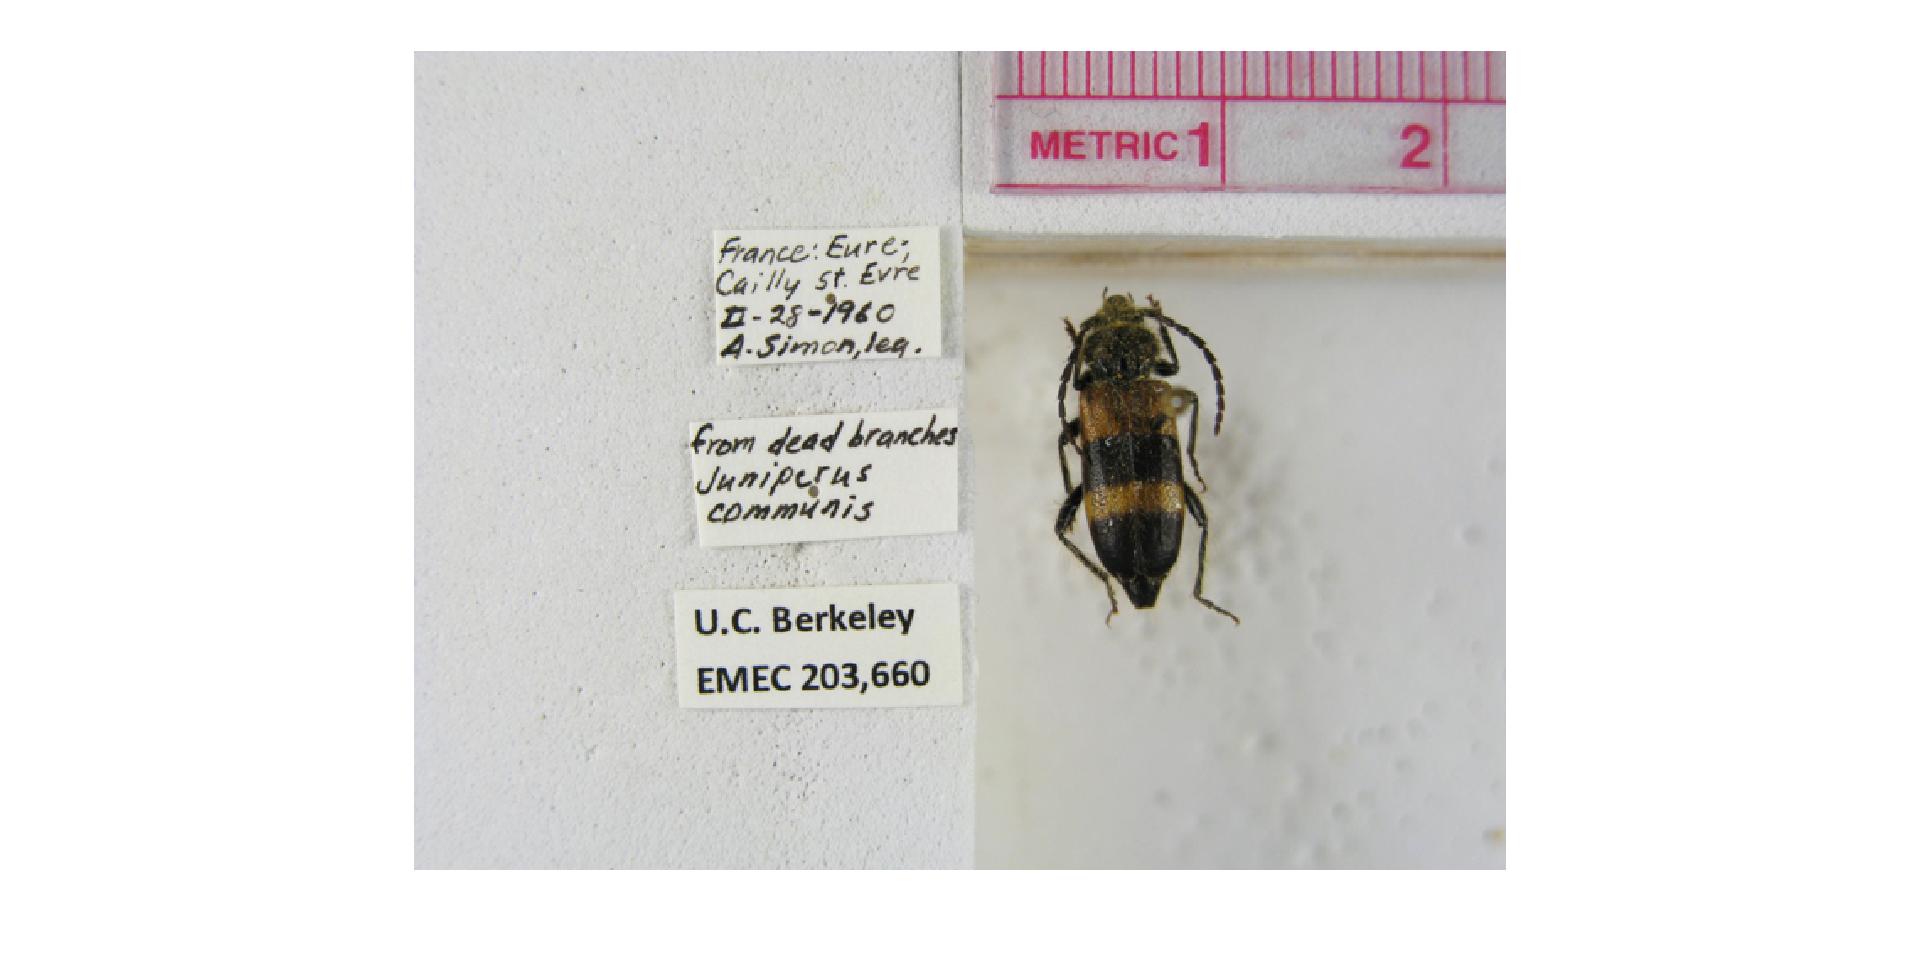 France: Eure;
Cailly st. Evre
II-28-1960
A. Simon, leg.
from dead branches
Juniperus
communis
U.C. Berkeley
EMEC 203,660
METRIC 1 2